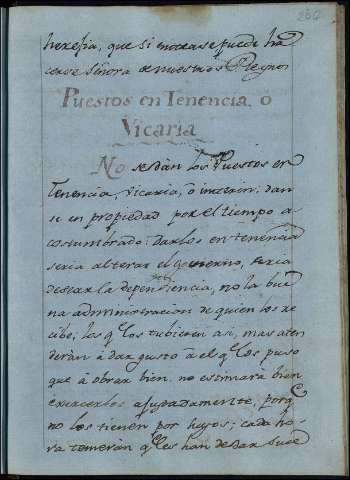 266
heregia, que si entrase puede ha
cerse Señora de nuestros Reynos
Puestos en Tenencia. o
Vicaria
No se dan los Puestos en
Tenencia, vicaria, ò interin: dan
se en propiedad por el tiempo a
costumbrado: darlos en tenencia
seria alterar el govierno, seria
desear la dependencia, no la bue
na administracion de quien los re
cibe; los q.e los tubieren asi, mas aten
deràn à dar gusto à el q.e los puso
que à obrar bien. no estimarà bien
exercerlos ajustadamente, porq.e
no los tienen por suyos; cada ho
ra temeràn q.e les han de dar suce